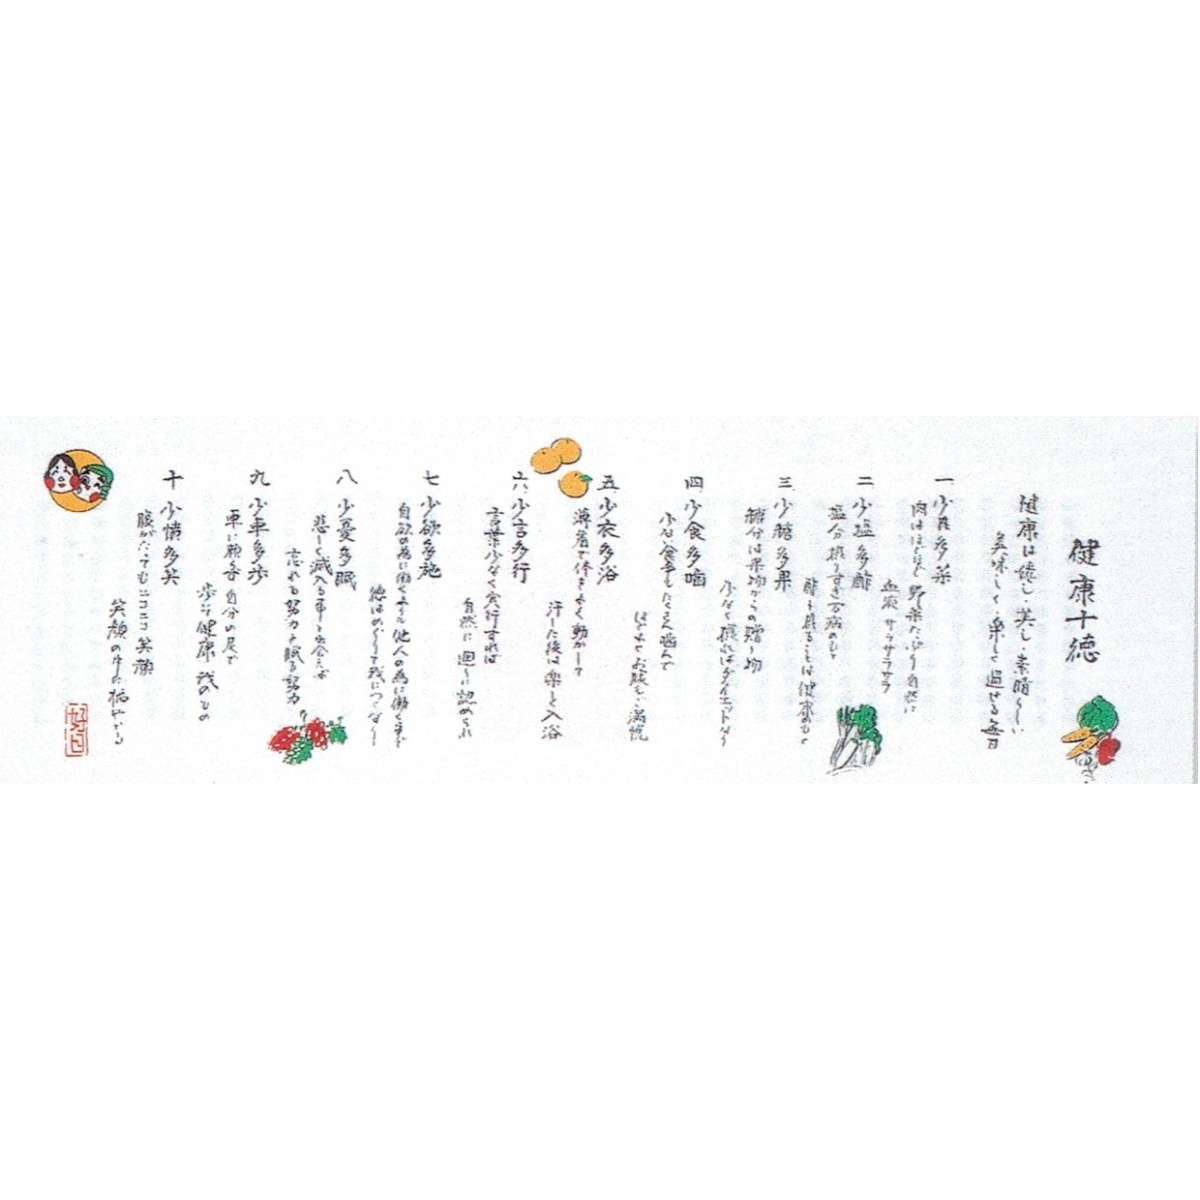 健康十徳
健康は優しい美しい素晴らしい
美味しく楽しく過せる毎日
一 少肉多菜
肉はほどほど 野菜たっぷり自然に
血液サラサラサラ
二 少塩多酢
塩分摂りすぎ万病のもと
酢を摂ることは健康のもと
三 少糖多果
糖分は果物からの贈り物
少なく摂ればダイエットなり
四 少食多噛
少ない食事もたくさん噛んで
お腹も満悦
五 少衣多浴
薄着で体をよく動かして
汗した後は楽しく入浴
六 少言多行
言葉少なく実行すれば
自然に廻りに認められ
七 少欲多施
自欲の為に働くより 他人の為に働くまで
徳はめぐりて我につながり
八 少憂多眠
悲しく滅入る事に出会えば
忘れる努力と眠る努力
九 少車多歩
車に頼らず自分の足で
歩けば健康 我のもの
十 少憤多笑
腹がたってもニコニコ 笑顔
笑顔の
好日